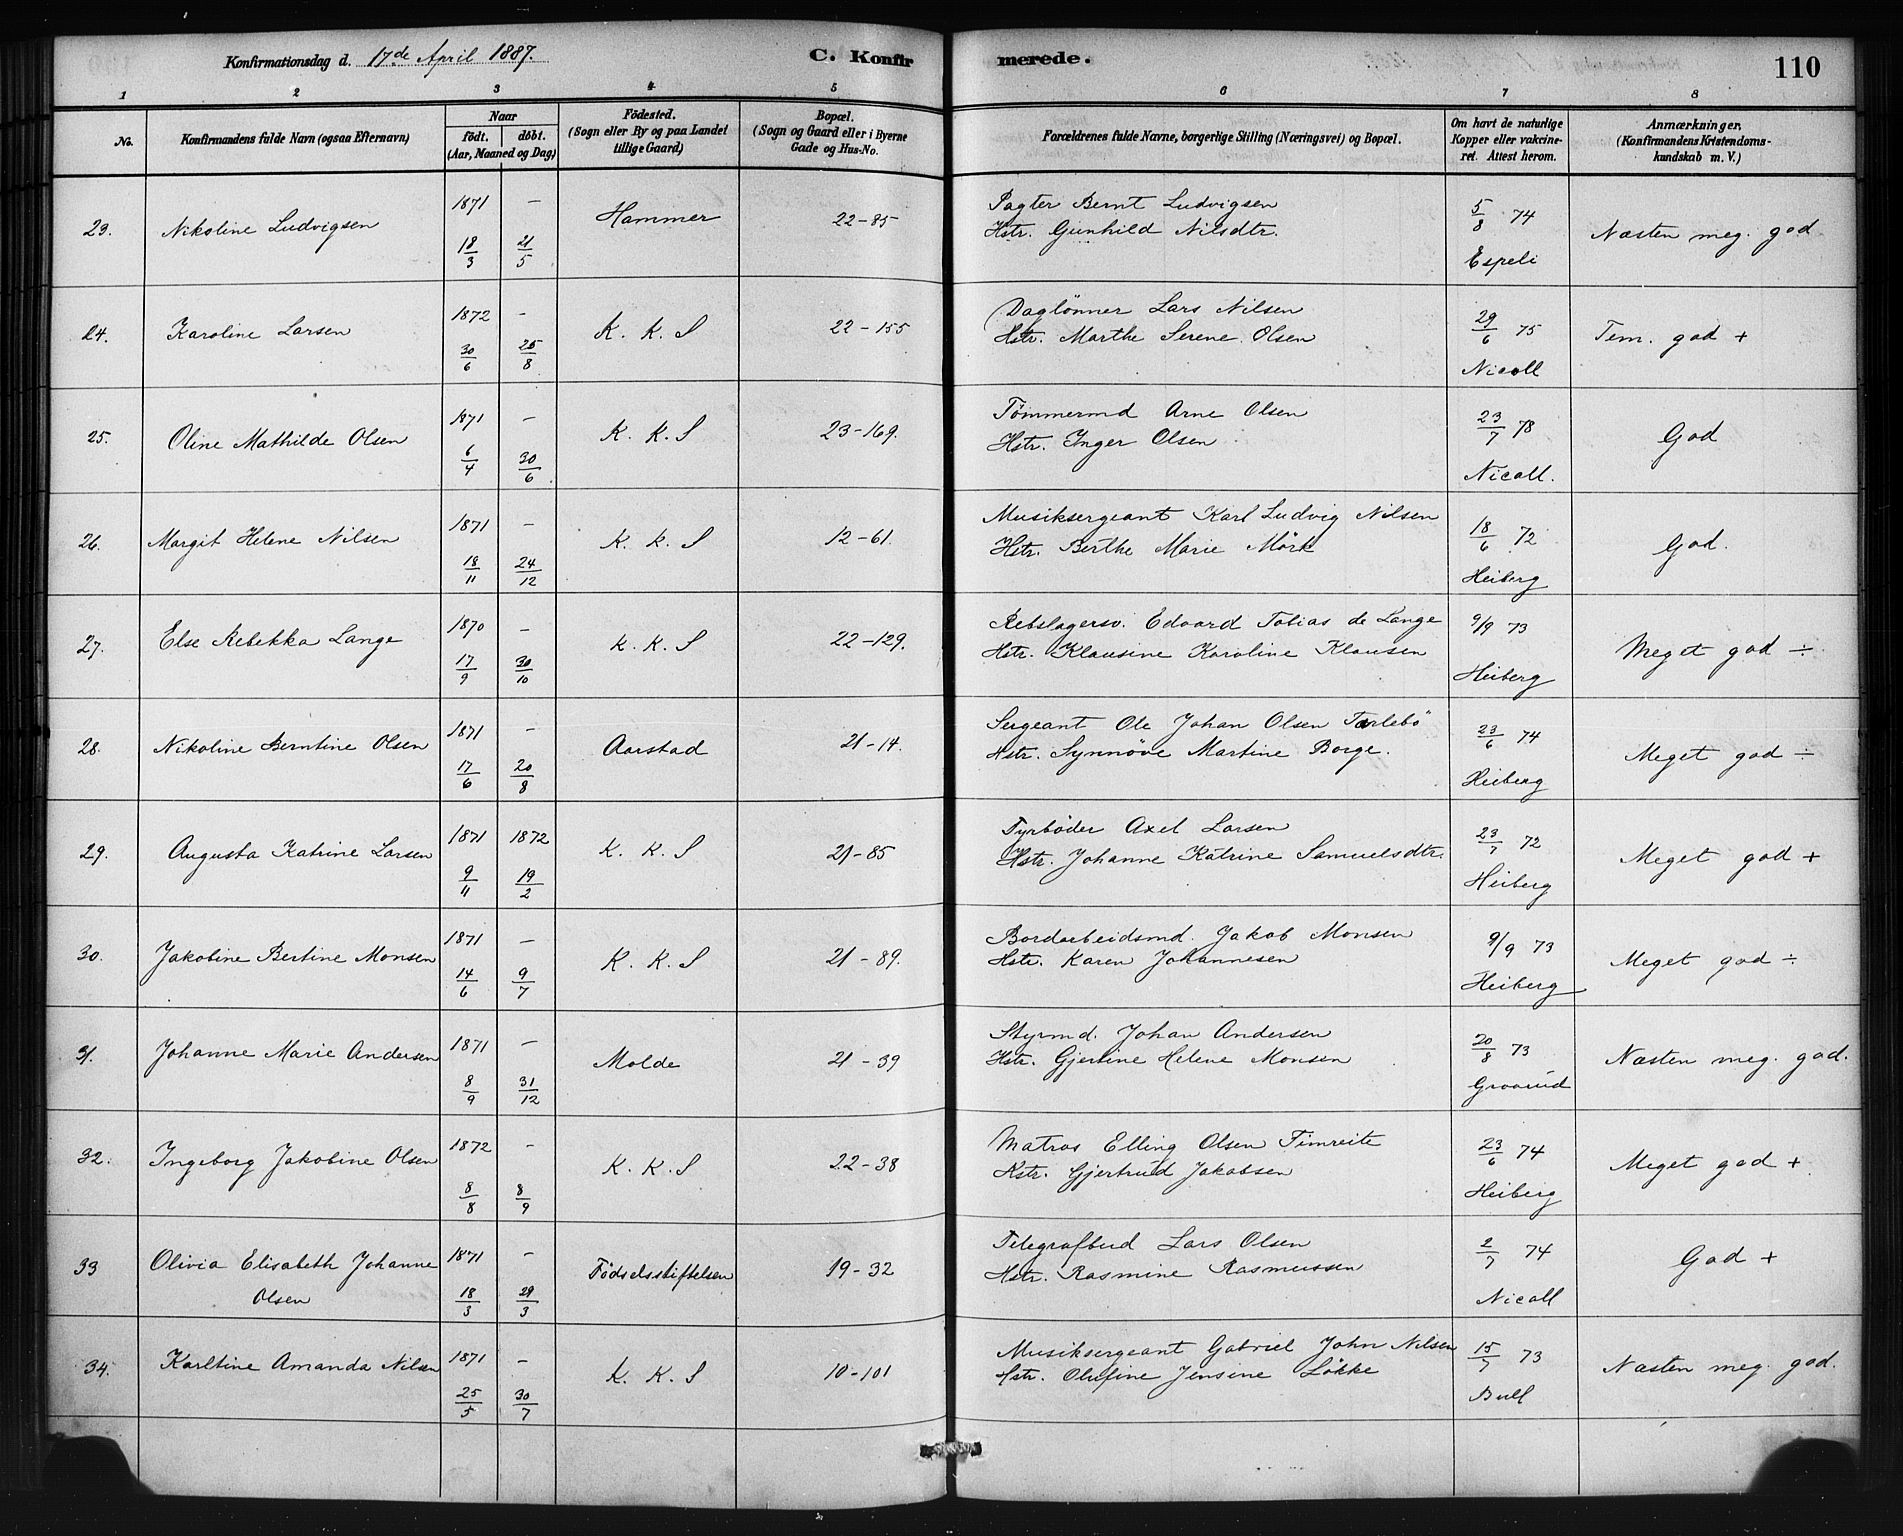 Konfirmationsdag d. 17de April 1887.
C. Konfirmerede.
110
1 2 3 4 5 6 7 8
No.
Konfirmandens fulde Navn (ogsaa Efternavn)
Naar
födt. döbt.
(Aar, Maaned og Dag)
Födested.
(Sogn eller By og paa Landet
tillige Gaard)
Bopæl.
(Sogn og Gaard eller i Byerne
Gade og Hus-No.
Forældrenes fulde Navne, borgerlige Stilling (Næringsvei) og Bopæl.
Om havt de naturlige
Kopper eller vakcine-
ret. Attest herom.
Anmærkninger.
(Konfirmandens Kristendoms-
kundskab m. V.)
23. Nikoline Ludvigsen 1871 18/3 – 21/5 Hammer 22-85
Pagter Bernt Ludvigsen
Hstr. Gunhild Nilsdtr.
5/8 74 Espeli
Næsten meg. god
24. Karoline Larsen 1872 30/6 – 25/8 K. K. S 22-155
Daglönner Lars Nilsen
Hstr. Marthe Serene Olsen
29/6 75 Nicoll
Tem. god +
25. Oline Mathilde Olsen 1871 6/4 – 30/6 K. K. S 23-169.
Tömmermd Arne Olsen
Hstr. Inger Olsen
23/7 78 Nicoll.
God
26. Margit Helene Nilsen 1871 18/11 – 24/12 K. K. S 12-61.
Musiksergeant Karl Ludvig Nilsen
Hstr. Berthe Marie Mörk
18/6 72 Heiberg
God.
27. Else Rebekka Lange 1870 17/9 – 30/10 K. K. S 22-129.
Rebslagersv. Edvard Tobias de Lange
Hstr. Klausine Karoline Klausen
9/9 73 Heiberg
Meget god ÷
28. Nikoline Berntine Olsen 1871 17/6 – 20/8 Aarstad 21-14.
Sergeant Ole Johan Olsen Tarlebö
Hstr. Synnöve Martine Borge.
23/6 74 Heiberg
Meget god ÷
29. Augusta Katrine Larsen 1871 9/11 1872 19/2 K. K. S 21-85
Fyrböder Axel Larsen
Hstr. Johanne Katrine Samuelsdtr.
23/7 72 Heiberg
Meget god +
30. Jakobine Bertine Monsen 1871 14/6 – 9/7 K. K. S 21-89.
Bordarbeidsmd. Jakob Monsen
Hstr. Karen Johannesen
9/9 73 Heiberg
Meget god ÷
31. Johanne Marie Andersen 1871 8/9 – 31/12 Molde 21-39
Styrmd. Johan Andersen
Hstr. Gjertine Helene Monsen
20/8 73 Graarud
Næsten meg. god.
32. Ingeborg Jakobine Olsen 1872 8/8 – 8/9 K. K. S 22-38
Matros Elling Olsen Timreite
Hstr. Gjertrud Jakobsen
23/6 74 Heiberg
Meget god +
33 Olivia Elisabeth Johanne
Olsen 1871 18/3 – 29/3 Födselsstiftelsen 19-32
Telegrafbud Lars Olsen
Hstr. Rasmine Rasmussen
2/7 74 Nicoll
God +
34. Karltine Amanda Nilsen 1871 25/5 – 30/7 K. K. S 10-101
Musiksergeant Gabriel John Nilsen
Hstr. Olufine Jensine Lökke
15/7 73 Bull
Næsten meg. god.